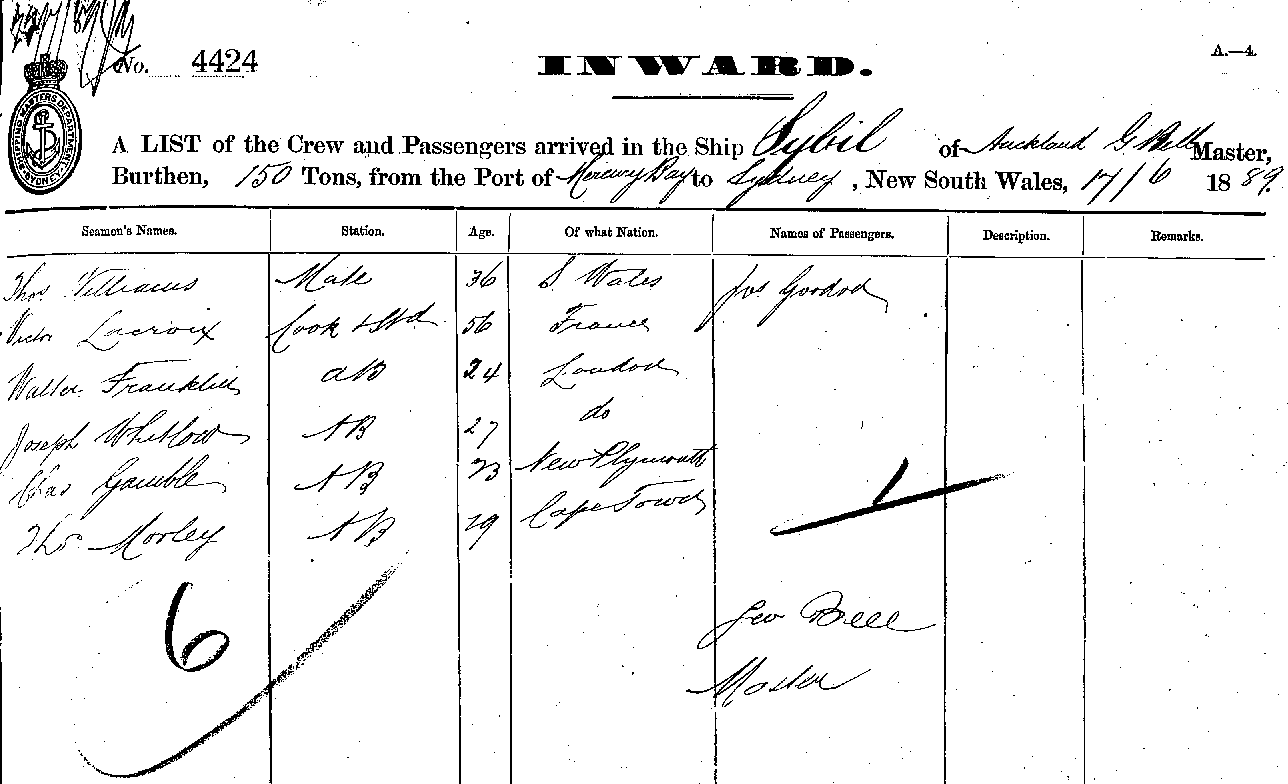 No. 4424
INWARD.
A.—4.
SHIPPING MASTERS DEPARTMENT SYDNEY
A LIST of the Crew and Passengers arrived in the Ship Sybil of Auckland G Bell Master,
Burthen, 150 Tons, from the Port of Mercury Bay to Sydney, New South Wales, 17/6 1889.
Seamen's Names. Station. Age. Of what Nation. Names of Passengers. Description. Remarks.
Thos Williams Mate 36 S. Wales Jos Gordon
Victor Lacroix Cook & Std 56 France
Walter Franklin AB 24 London
Joseph Whitlow AB 27 do
Chas Gamble AB 23 New Plymouth
Thos Morley AB 19 Cape Town
1
6
Geo Bell
Master